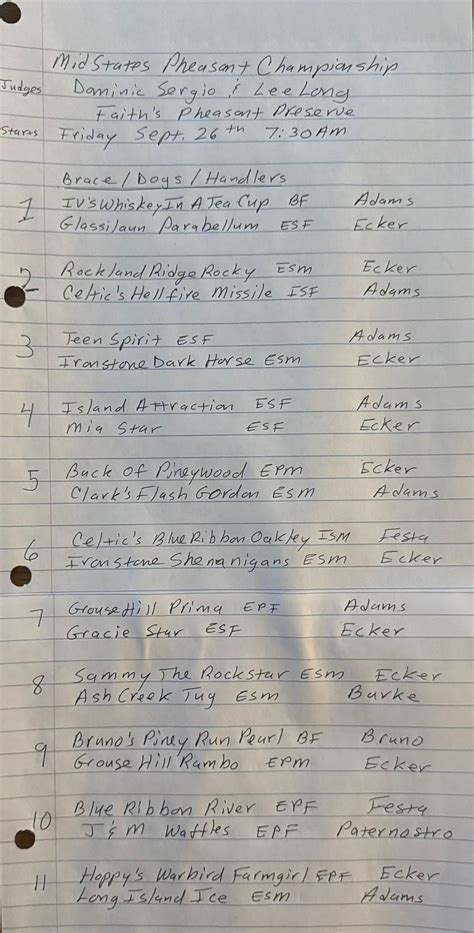 MidStates Pheasant Championship
Judges Dominic Sergio & Lee Long
Faith's Pheasant Preserve
Starts Friday Sept. 26th 7:30AM
Brace/Dogs/Handlers
1 IV'S Whiskey In A Tea Cup BF Adams
Glassilaun Parabellum ESF Ecker
2 Rockland Ridge Rocky ESM Ecker
Celtic's Hellfire Missile ISF Adams
3 Teen Spirit ESF Adams
Ironstone Dark Horse ESM Ecker
4 Island Attraction ESF Adams
Mia Star ESF Ecker
5 Buck of Pineywood EPM Ecker
Clark's Flash Gordon ESM Adams
6 Celtic's Blue Ribbon Oakley ISM Festa
Ironstone Shenanigans ESM Ecker
7 Grouse Hill Prima EPF Adams
Gracie Star ESF Ecker
8 Sammy The Rockstar ESM Ecker
Ash Creek Tug ESM Burke
9 Bruno's Piney Run Pearl BF Bruno
Grouse Hill Rambo EPM Ecker
10 Blue Ribbon River EPF Festa
J & M Waffles EPF Paternostro
11 Hoppy's Warbird Farmgirl EPF Ecker
Long Island Ice ESM Adams